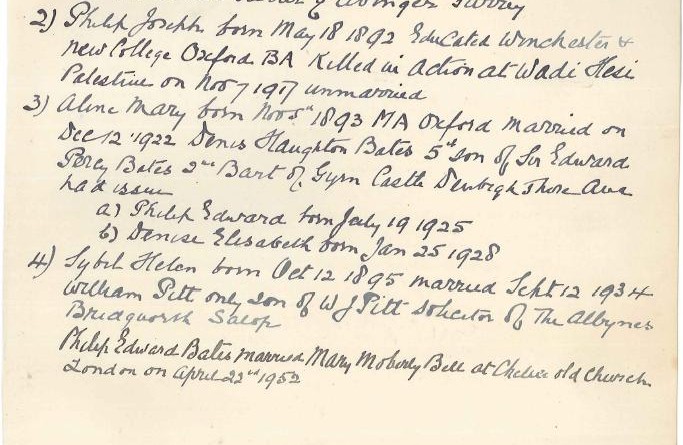 & Abinger Surrey
2) Philip Joseph born May 18 1892 Educated Winchester &
New College Oxford BA Killed in Action at Wadi Hesi
Palestine on Nov 7 1917 unmarried
3) Aline Mary born Nov 5th 1893 MA Oxford married on
Dec 12 1922 Denis Haughton Bates 5th son of Sir Edward
Percy Bates 2nd Bart of Gyrn Castle Denbighshore and
had issue
a) Philip Edward born July 19 1925
b) Denise Elisabeth born Jan 25 1928
4) Sybil Helen born Oct 12 1895 married Sept 12 1934
William Pitt only son of W J Pitt Solicitor of The Albynes
Bridgnorth Salop
Philip Edward Bates married Mary Moberly Bell at Chelsea old Church
London on April 22nd 1952